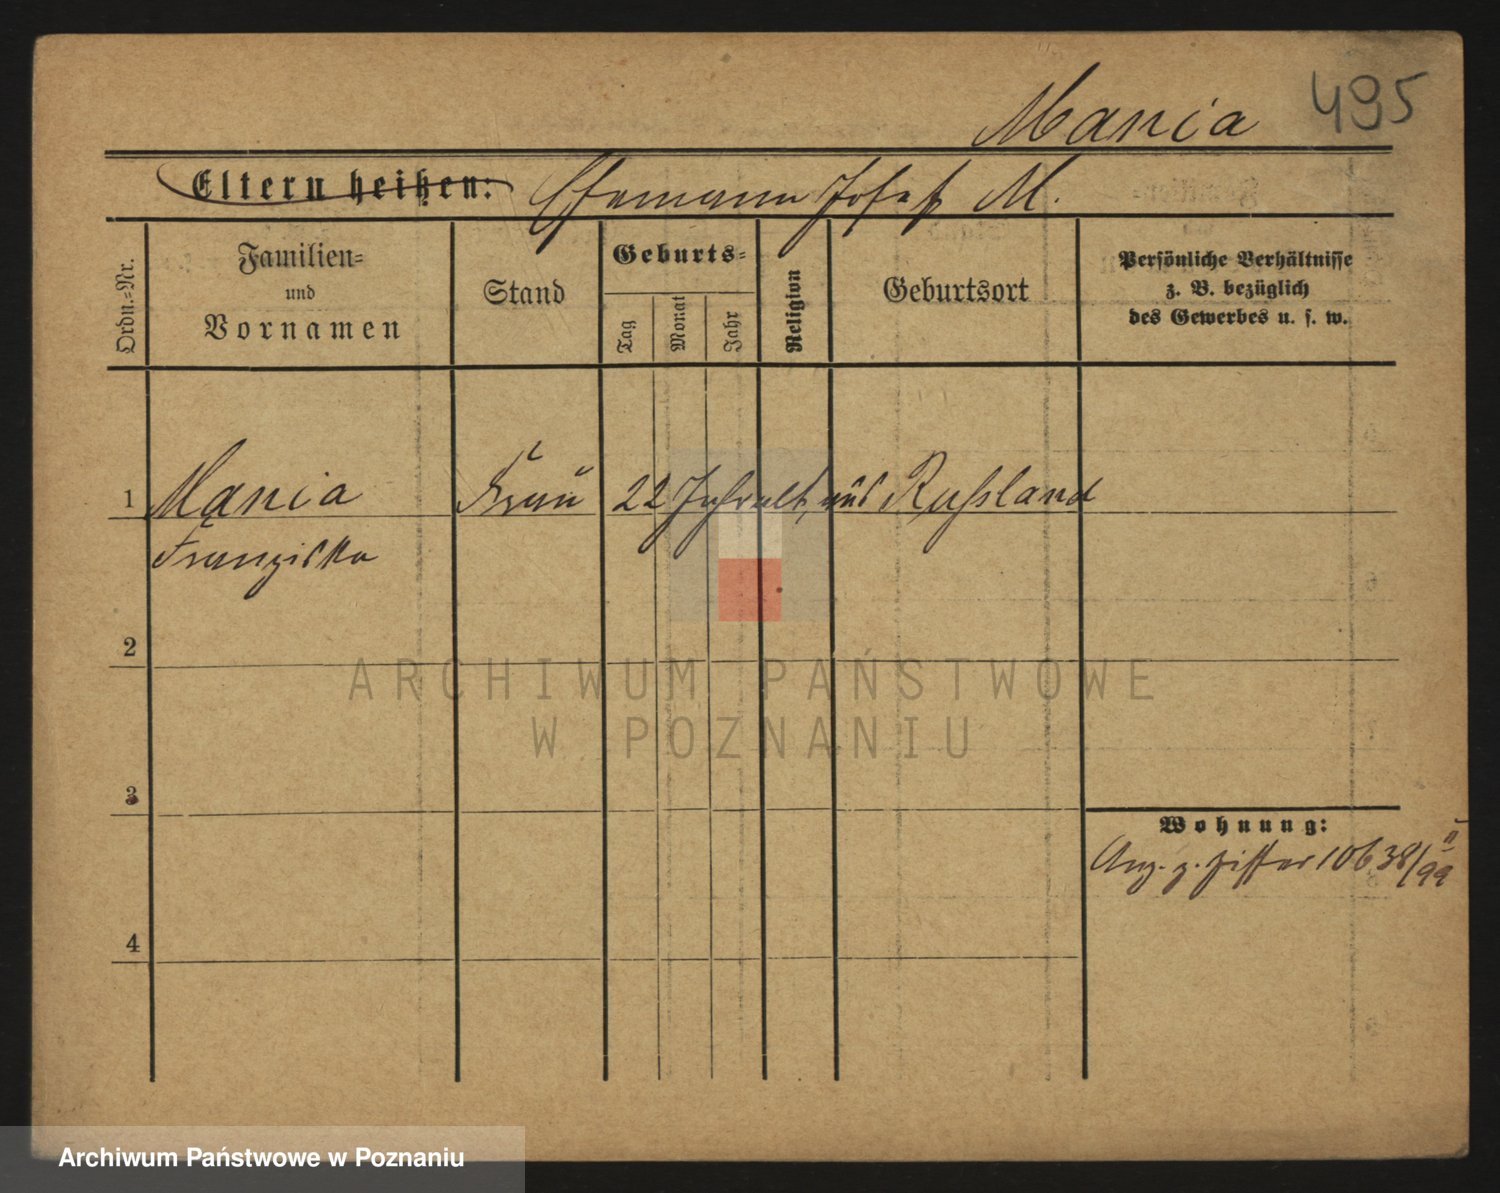 495
Mania
Eltern heißen: Ehemann Josef M.
Ordn.-Nr.
Familien-
und
Vornamen
Stand
Geburts-
Tag
Monat
Jahr
Religion
Geburtsort
Persönliche Verhältnisse
z. B. bezüglich
des Gewerbes u. s. w.
1 Mania Frau 22 Jahr alt, aus Russland
Franziska
2
ARCHIWUM PAŃSTWOWE
W POZNANIU
3
Wohnung:
Anz. z. Ziffer 10638/99 II
4
Archiwum Państwowe w Poznaniu